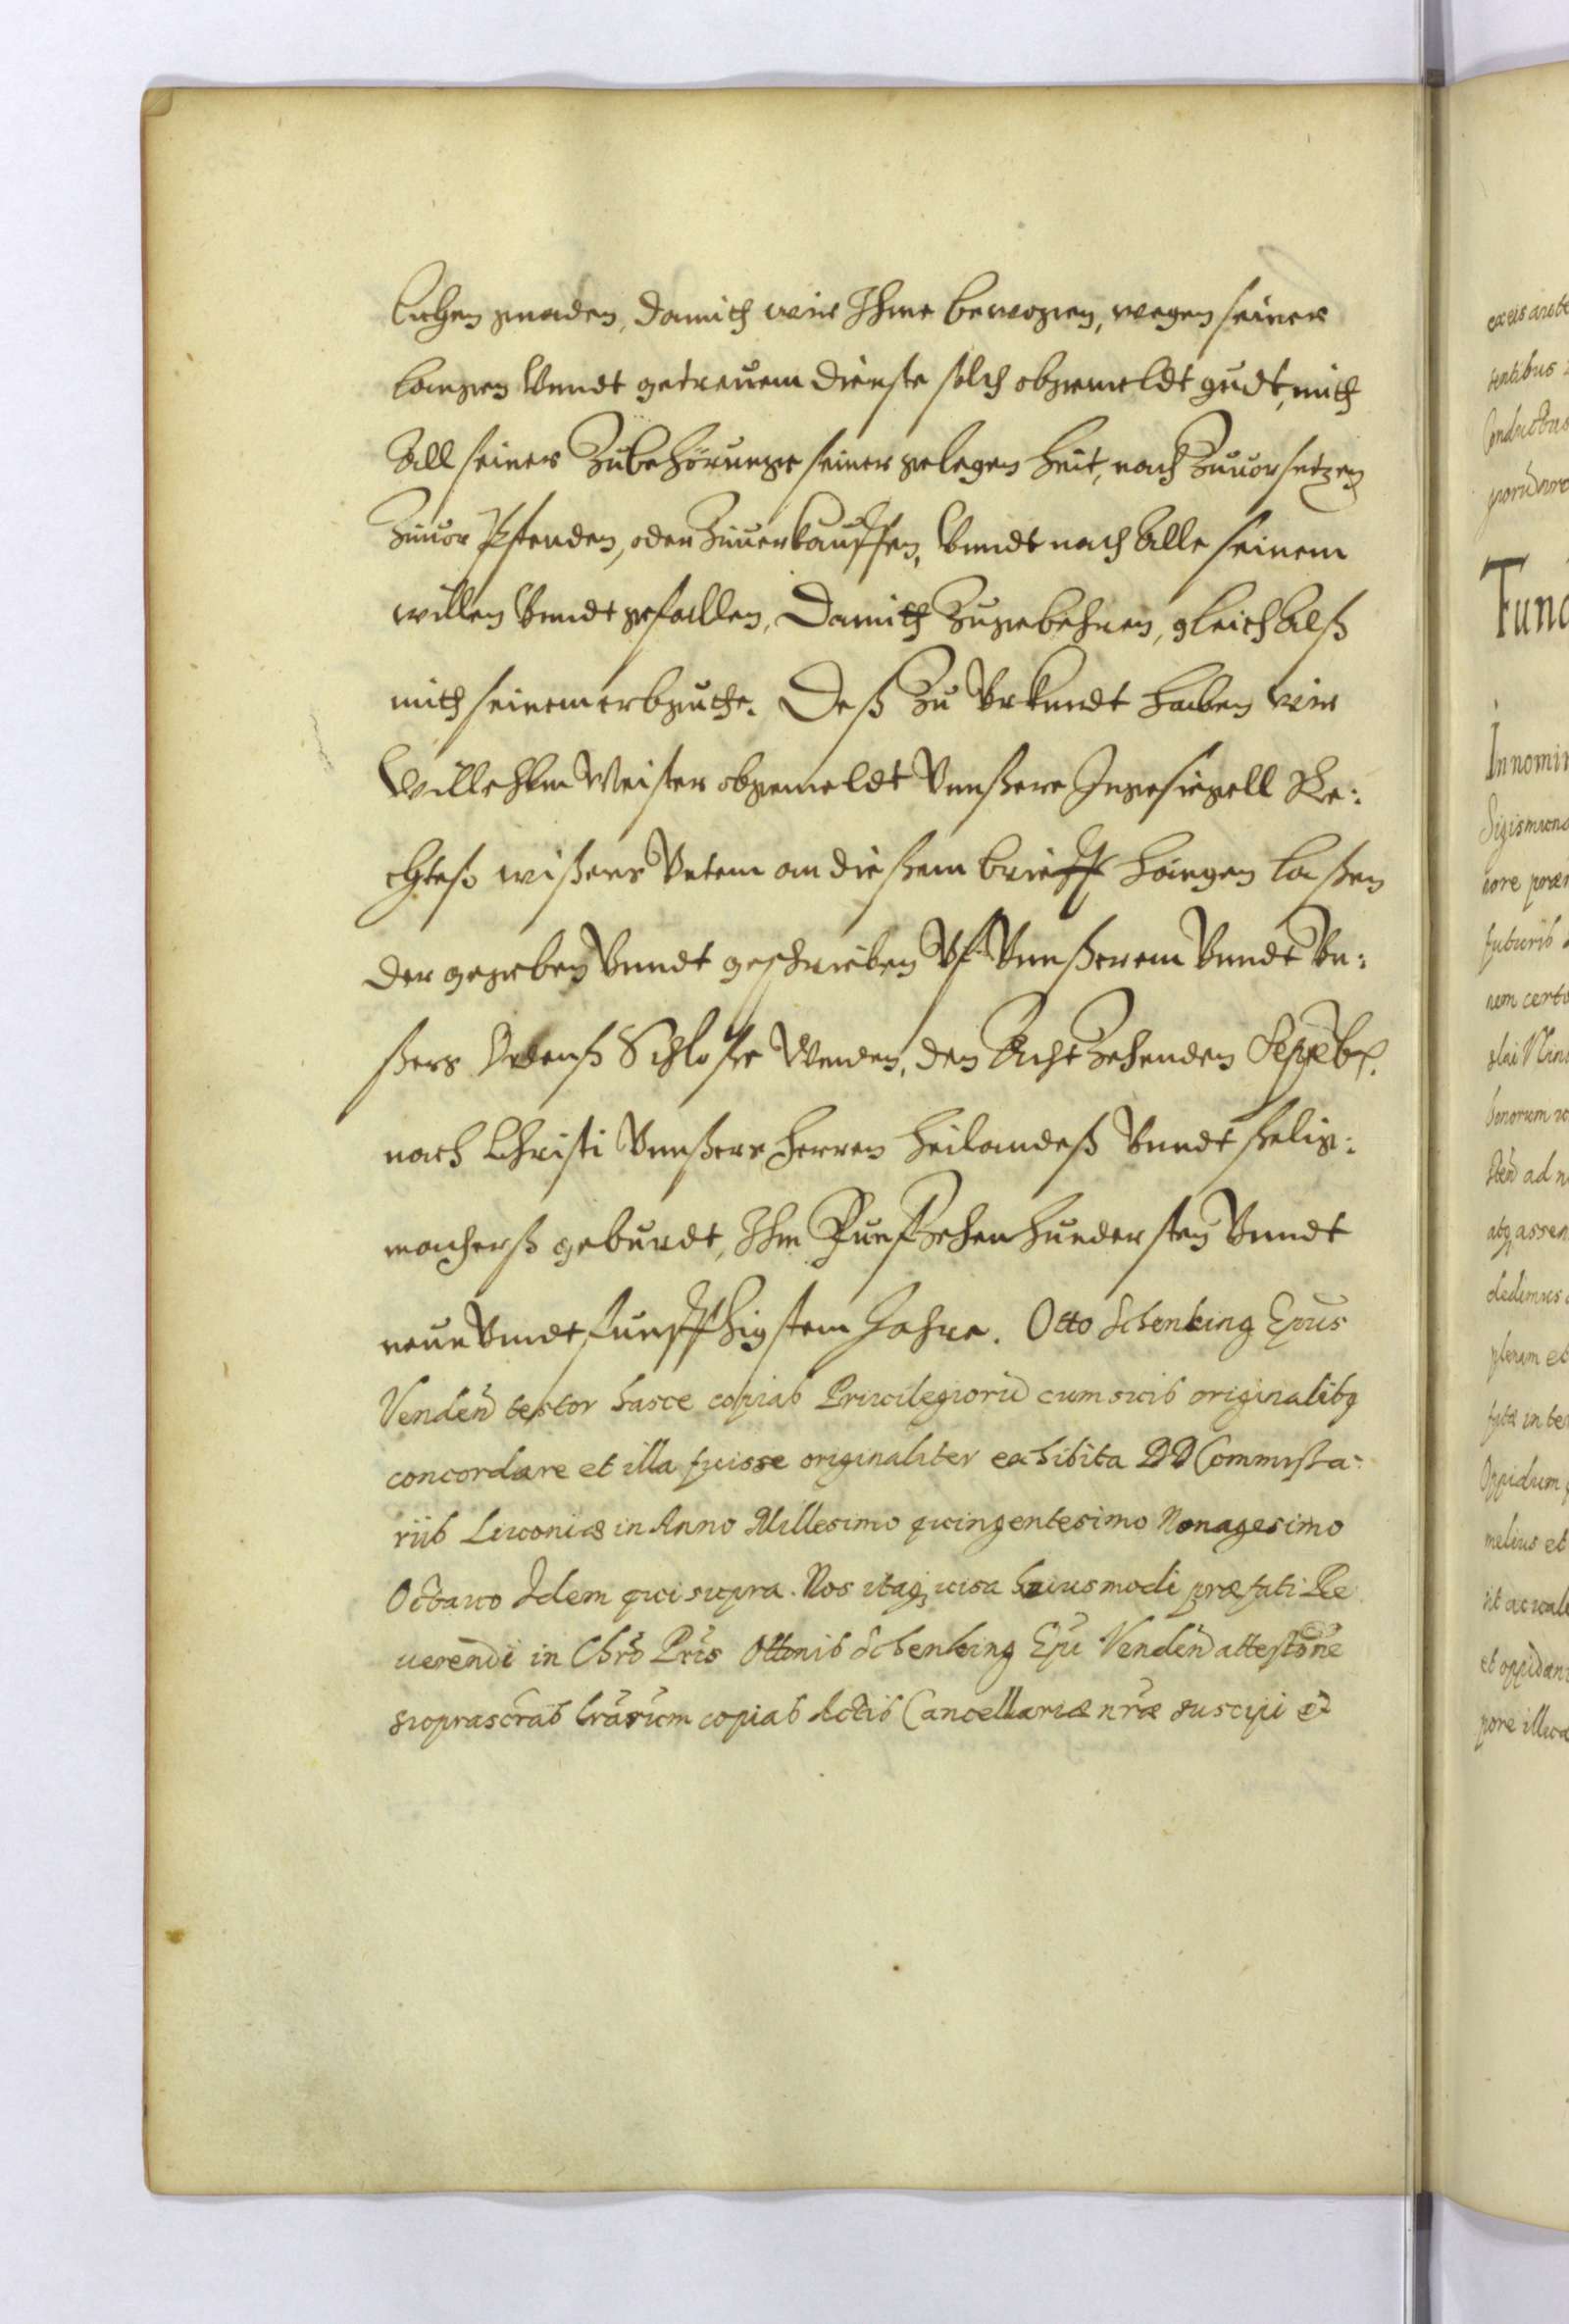 lichen gnaden, damith wir Ihme bewogen, wegen seiner
langen Vnndt getreuem dienste solch obgemeldt gudt, mith
All seiner Zubehörunge seiner gelegen heit, nach Zuuorsetzen
Zuuor Pfenden, oder Zuuerkauffen, Vnndt nach Alle seinem
willen Vnndt gefallen, Damith Zugebehren, gleich Alß
mith seinem erbguthe. Deß Zu Vrkundt haben wir
Willehlm Meister obgemeldt Vnnßere Ingesiegell Re:
chteß wißens Vnten an dießem brieff hangen laßen
der gegeben Vnndt geschrieben Vf Vnnßerem Vnndt Vn:
ßers Ordenß Schloße Wenden, den Acht Zehenden Septeb.
nach Christi Vnnßers herren heilandeß Vnndt selig:
macherß geburdt, Ihm Funfzehen hundersten Vnndt
neun Vnndt funffthigstem Jahre. Otto Schenking Epus
Venden testor hasce copias Priuilegioru cum suis originalibq
concordare et illa fuisse originaliter exhibita DD Commissa-
riis Liuoniæ in Anno Millesimo quingentesimo Nonagesimo
Octauo Idem qui supra. Nos itaq uisa huiusmodi præfati Re
uerendi in Chro Pris Ottonis Schenking Epi Venden attestone
suprascras lrarum copias Actis Cancellariæ nræ suscipi et
exeis
sentibus
Fund
In nomin
Sigismund
iore præ
futuris
nem certo
slai Nin
bonorum
den ad n
atq assen
dedimus
plenam et
in te
Oppidum
melius et
et oppidan
pore illic